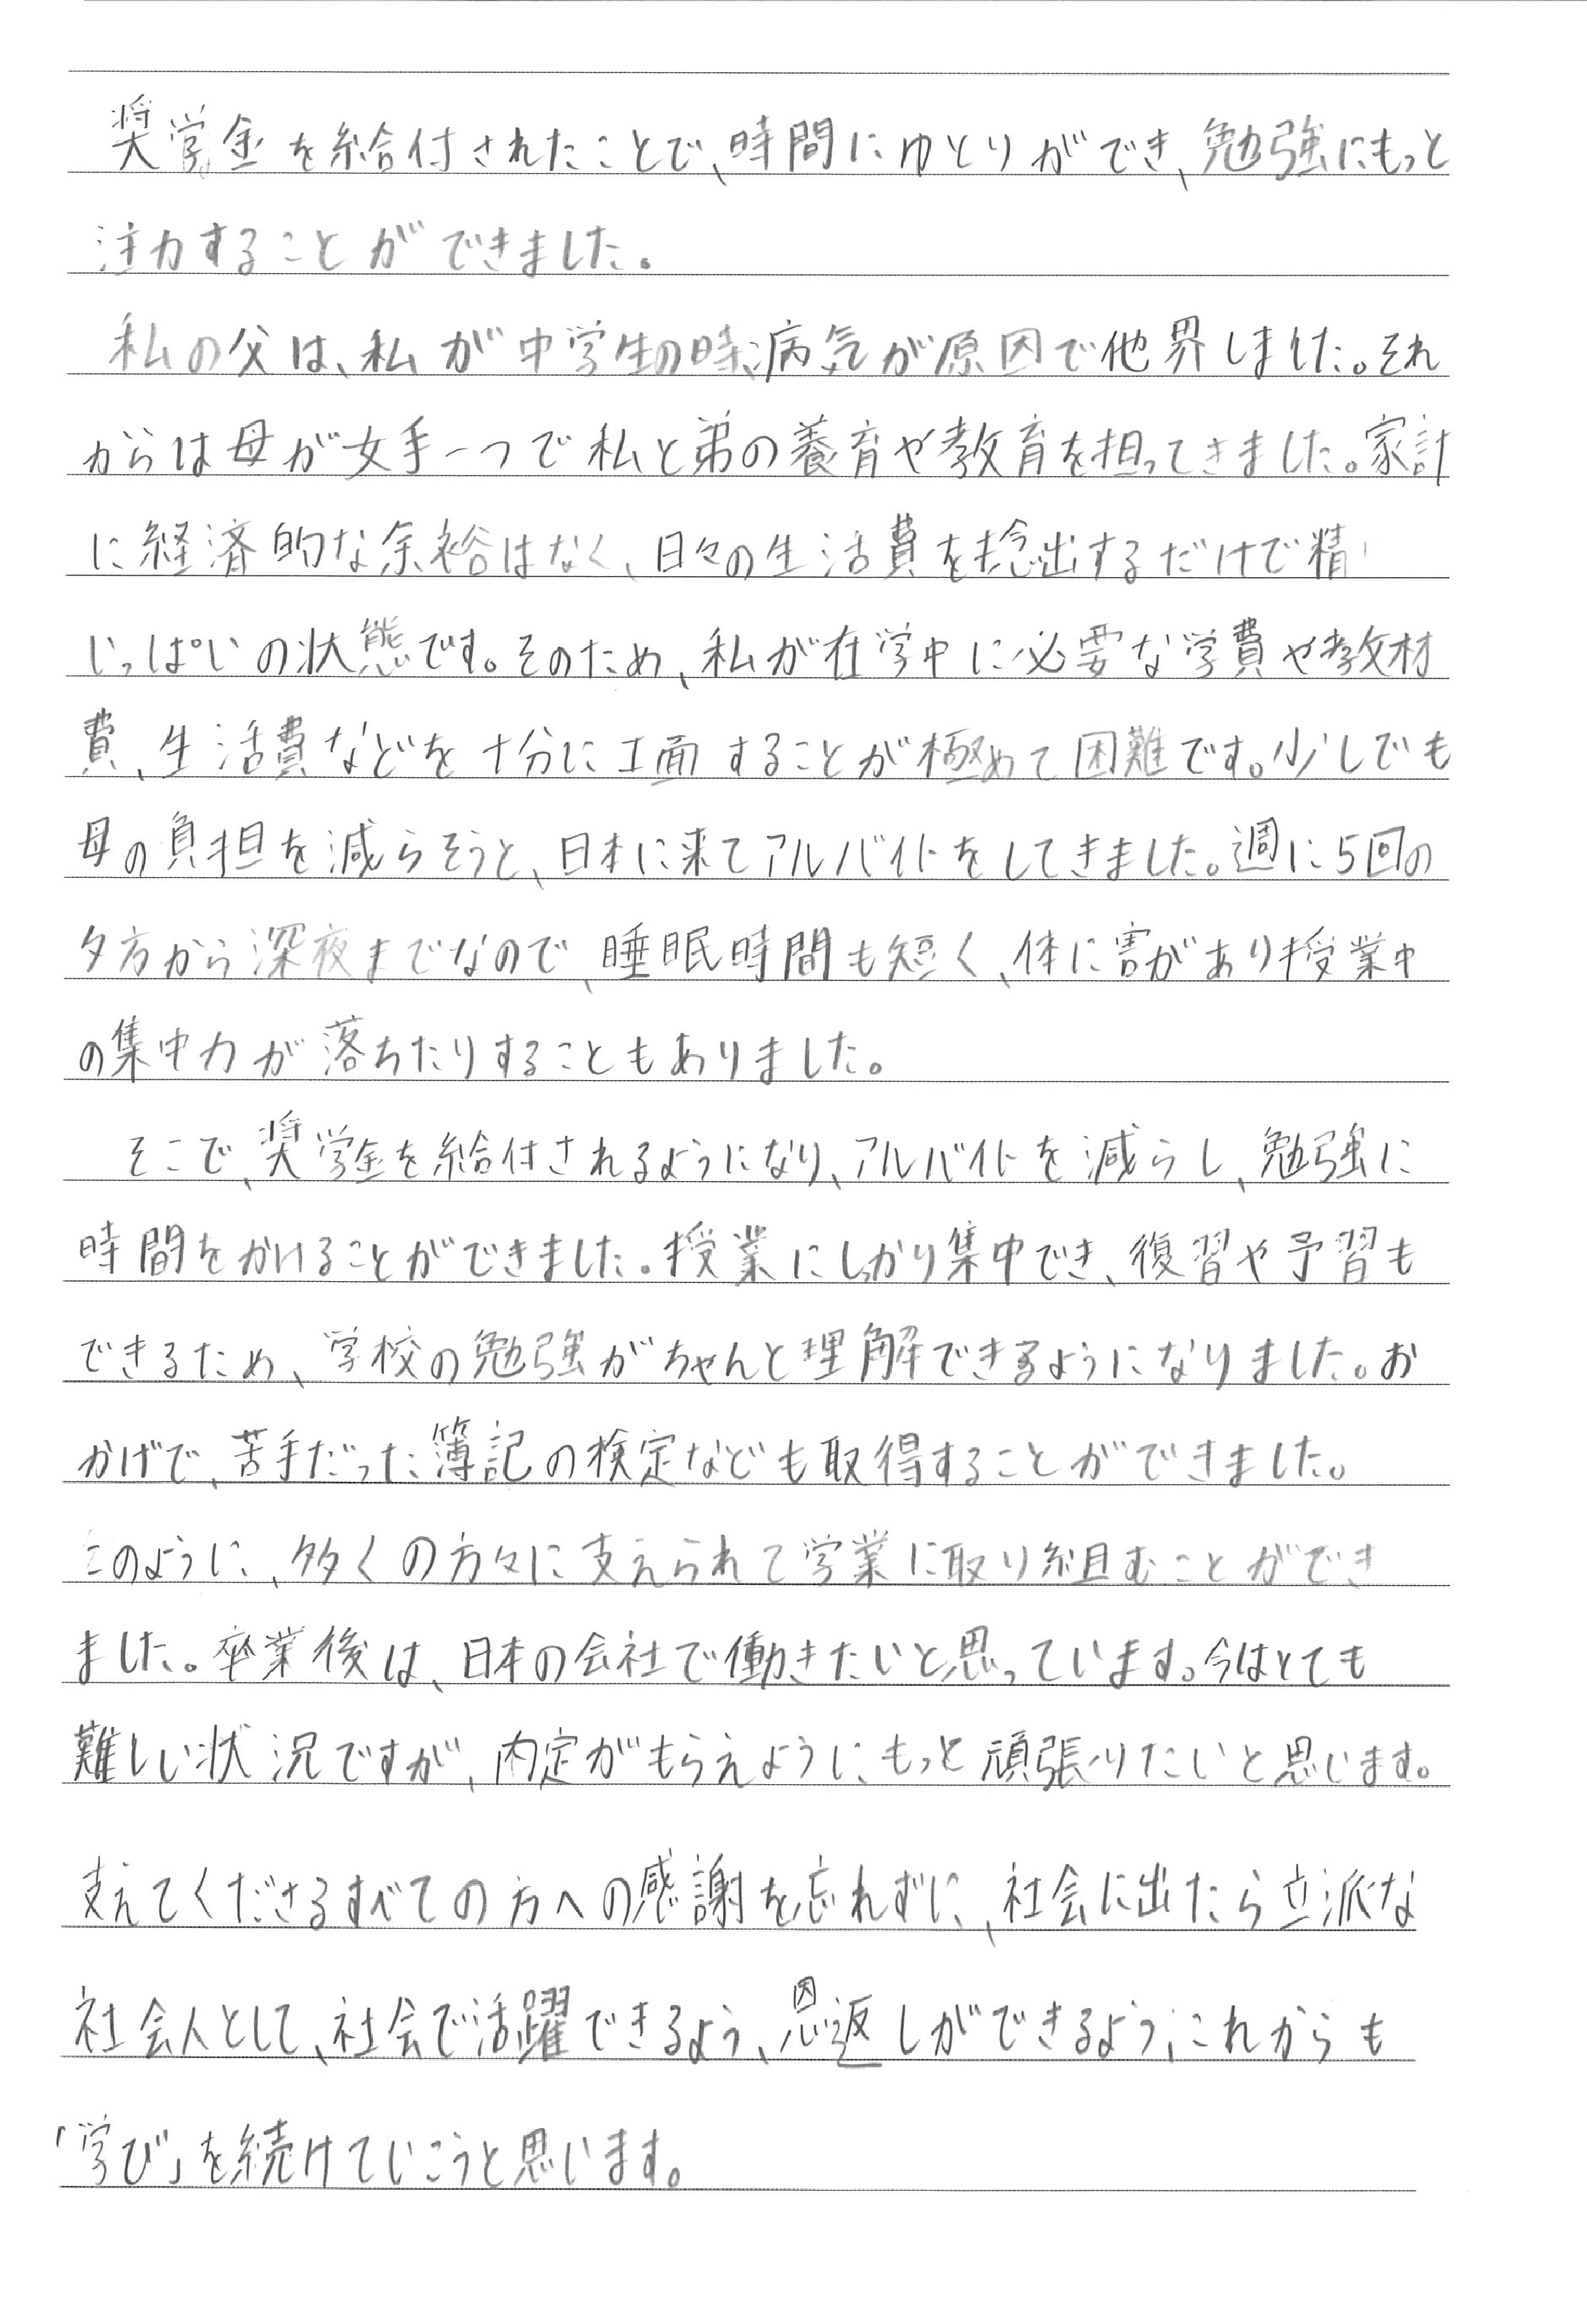 奨学金を給付されたことで、時間にゆとりができ、勉強にもっと
注力することができました。
私の父は、私が中学生の時、病気が原因で他界しました。それ
からは母が女手一つで私と弟の養育や教育を担ってきました。家計
に経済的な余裕はなく、日々の生活費を捻出するだけで精
いっぱいの状態です。そのため、私が在学中に必要な学費や教材
費、生活費などを十分に工面することが極めて困難です。少しでも
母の負担を減らそうと、日本に来てアルバイトをしてきました。週に5回の
夕方から深夜までなので、睡眠時間も短く、体に害があり授業中
の集中力が落ちたりすることもありました。
そこで、奨学金を給付されるようになり、アルバイトを減らし、勉強に
時間をかけることができました。授業にしっかり集中でき、復習や予習も
できるため、学校の勉強がちゃんと理解できるようになりました。お
かげで、苦手だった簿記の検定なども取得することができました。
このように、多くの方々に支えられて学業に取り組むことができ
ました。卒業後は、日本の会社で働きたいと思っています。今はとても
難しい状況ですが、内定がもらえようにもっと頑張りたいと思います。
支えてくださるすべての方への感謝を忘れずに、社会に出たら立派な
社会人として、社会で活躍できるよう、恩返しができるよう、これからも
「学び」を続けていこうと思います。